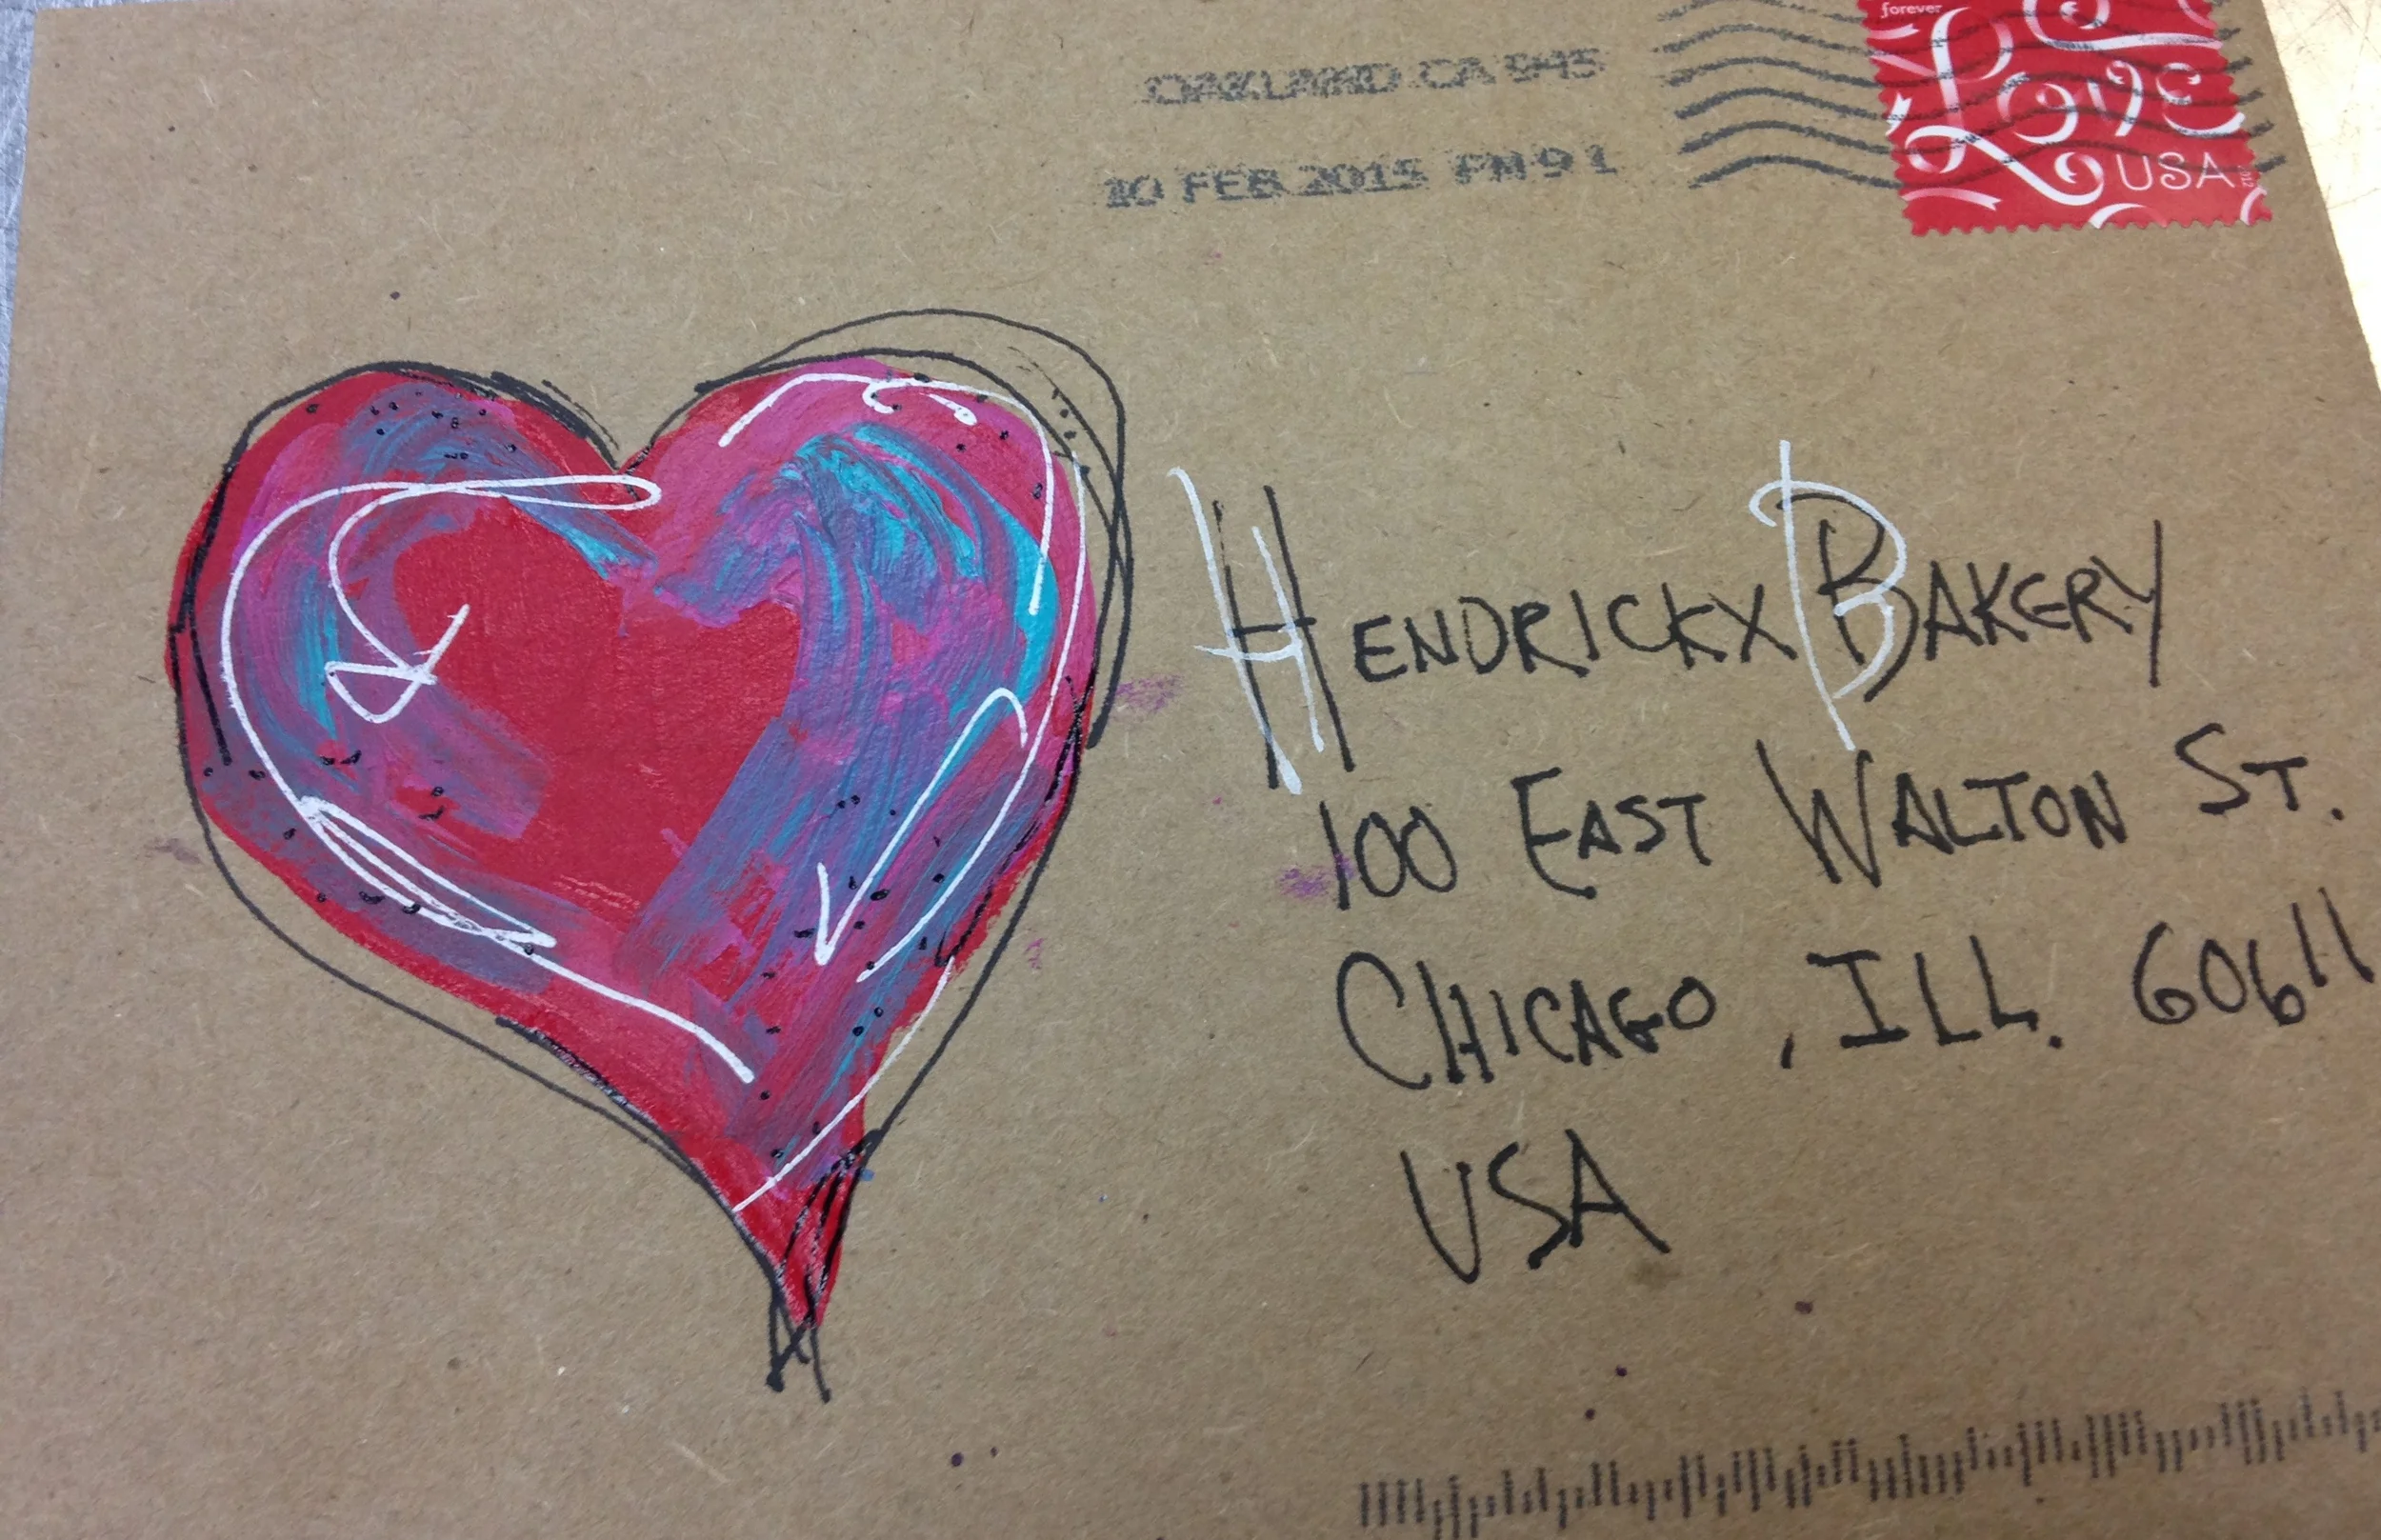 forever
Love
USA
2012
OAKLAND CA 945
10 FEB 2015 PM 9 L
HENDRICKX BAKERY
100 EAST WALTON ST.
CHICAGO, ILL. 60611
USA